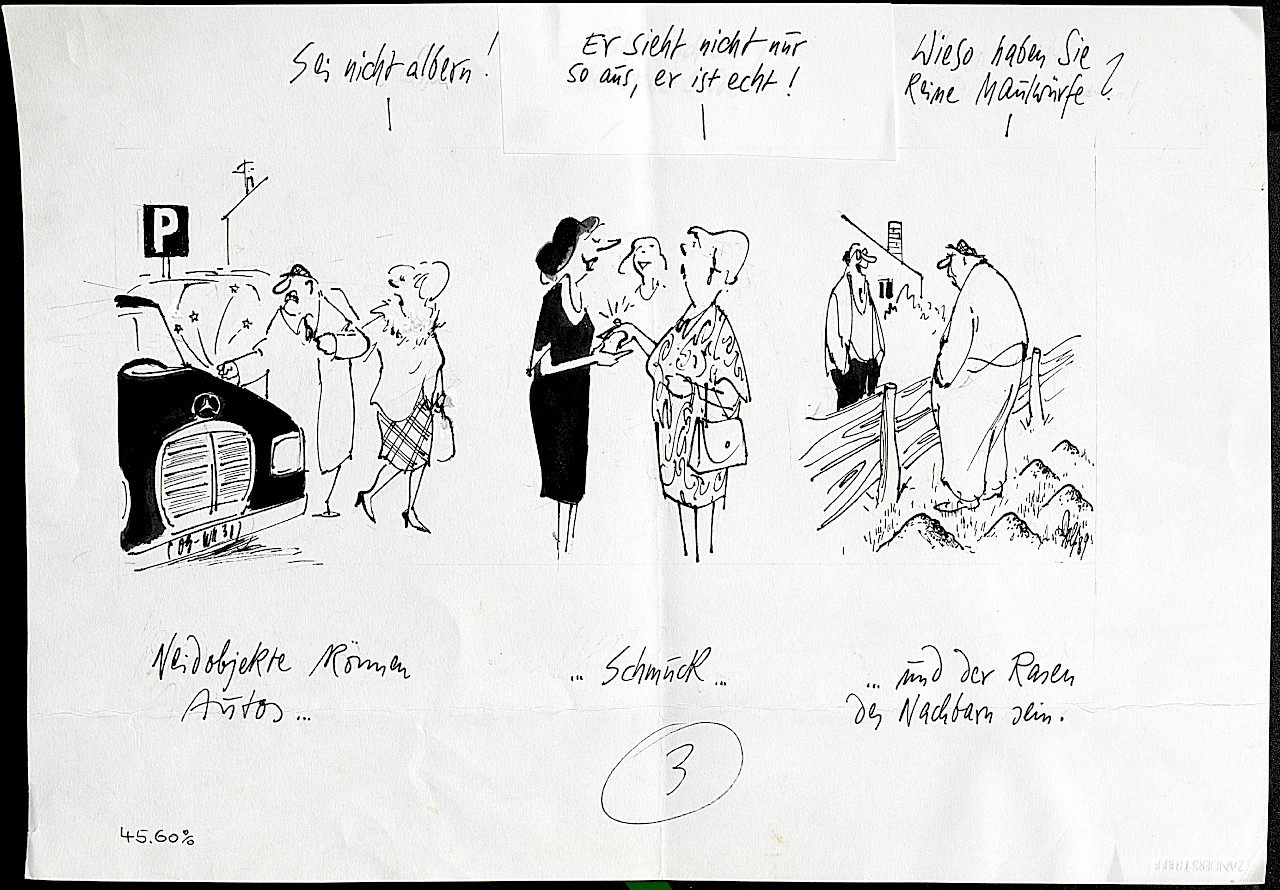 Sei nicht albern!
Er sieht nicht nur
so aus, er ist echt!
Wieso haben Sie
keine Maulwürfe?
P
Neidobjekte können
Autos...
... Schmuck...
... und der Rasen
des Nachbarn sein.
3
45.60%